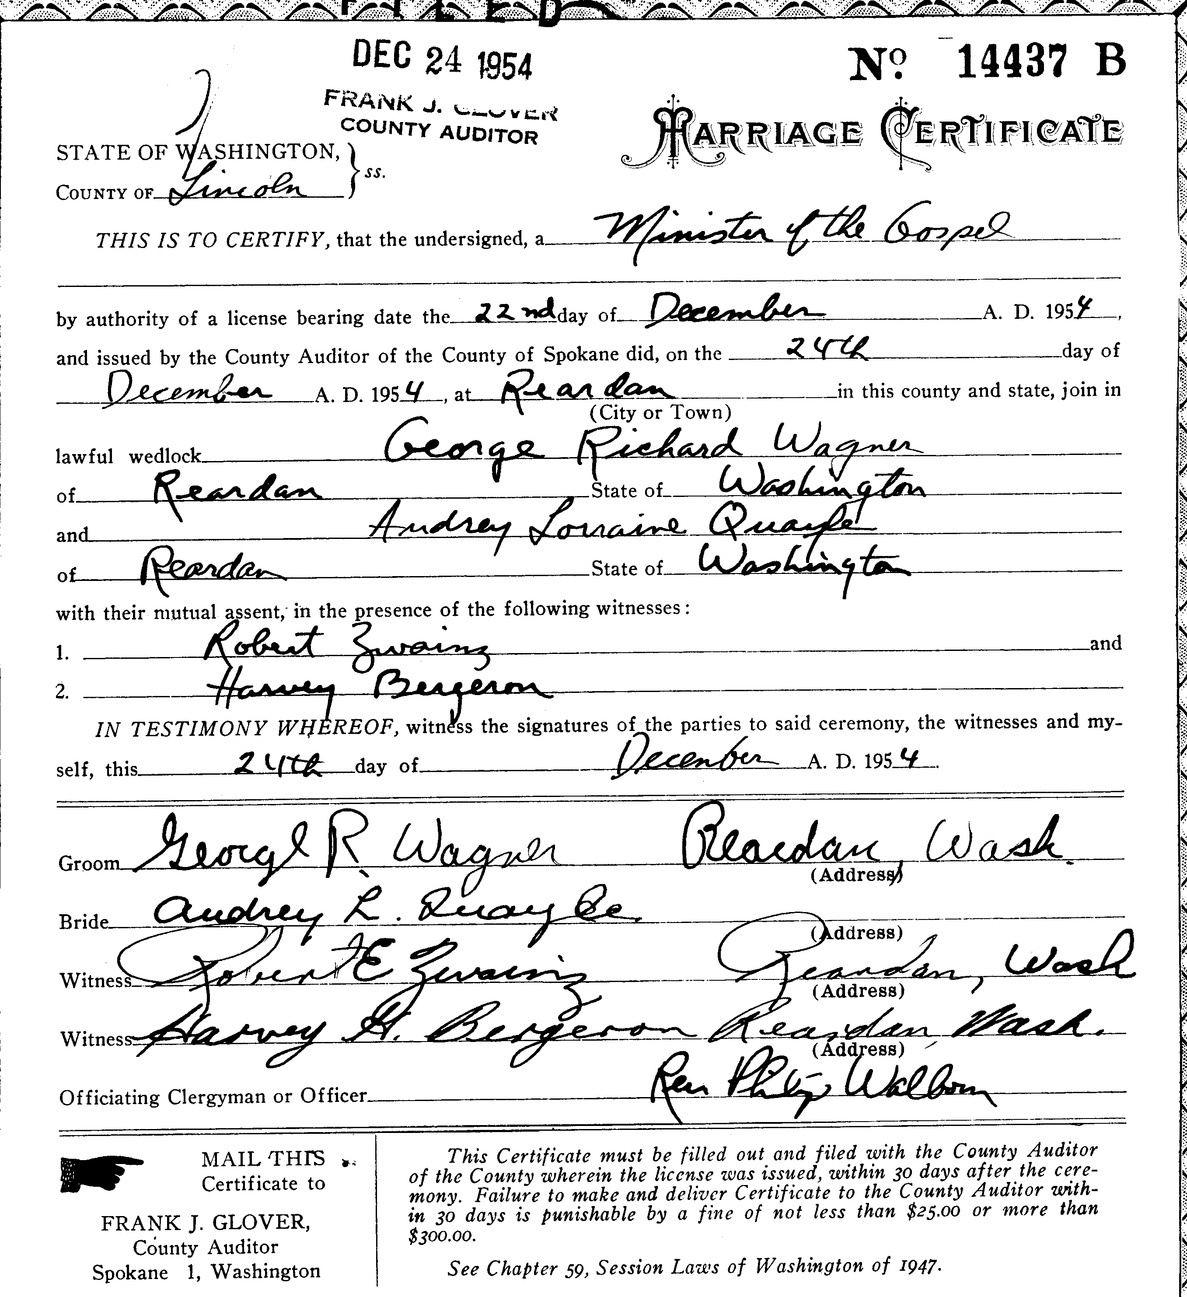 FILED
DEC 24 1954
No. 14437 B
FRANK J. GLOVER
COUNTY AUDITOR
MARRIAGE CERTIFICATE
STATE OF WASHINGTON, } ss.
COUNTY OF Lincoln
THIS IS TO CERTIFY, that the undersigned, a Minister of the Gospel
by authority of a license bearing date the 22nd day of December A. D. 1954,
and issued by the County Auditor of the County of Spokane did, on the 24th day of
December A. D. 1954, at Reardan in this county and state, join in
(City or Town)
lawful wedlock George Richard Wagner
of Reardan State of Washington
and Audrey Lorraine Quayle
of Reardan State of Washington
with their mutual assent, in the presence of the following witnesses:
1. Robert Zwainz and
2. Harvey Bergeron
IN TESTIMONY WHEREOF, witness the signatures of the parties to said ceremony, the witnesses and my-
self, this 24th day of December A. D. 1954.
Groom George R. Wagner Reardan, Wash.
(Address)
Bride Audrey L. Quayle
(Address)
Witness Robert E Zwainz Reardan, Wash
(Address)
Witness Harvey H. Bergeron Reardan Wash.
(Address)
Officiating Clergyman or Officer Rev Philip Walborn
MAIL THIS
Certificate to
FRANK J. GLOVER,
County Auditor
Spokane 1, Washington
This Certificate must be filled out and filed with the County Auditor
of the County wherein the license was issued, within 30 days after the cere-
mony. Failure to make and deliver Certificate to the County Auditor with-
in 30 days is punishable by a fine of not less than $25.00 or more than
$300.00.
See Chapter 59, Session Laws of Washington of 1947.